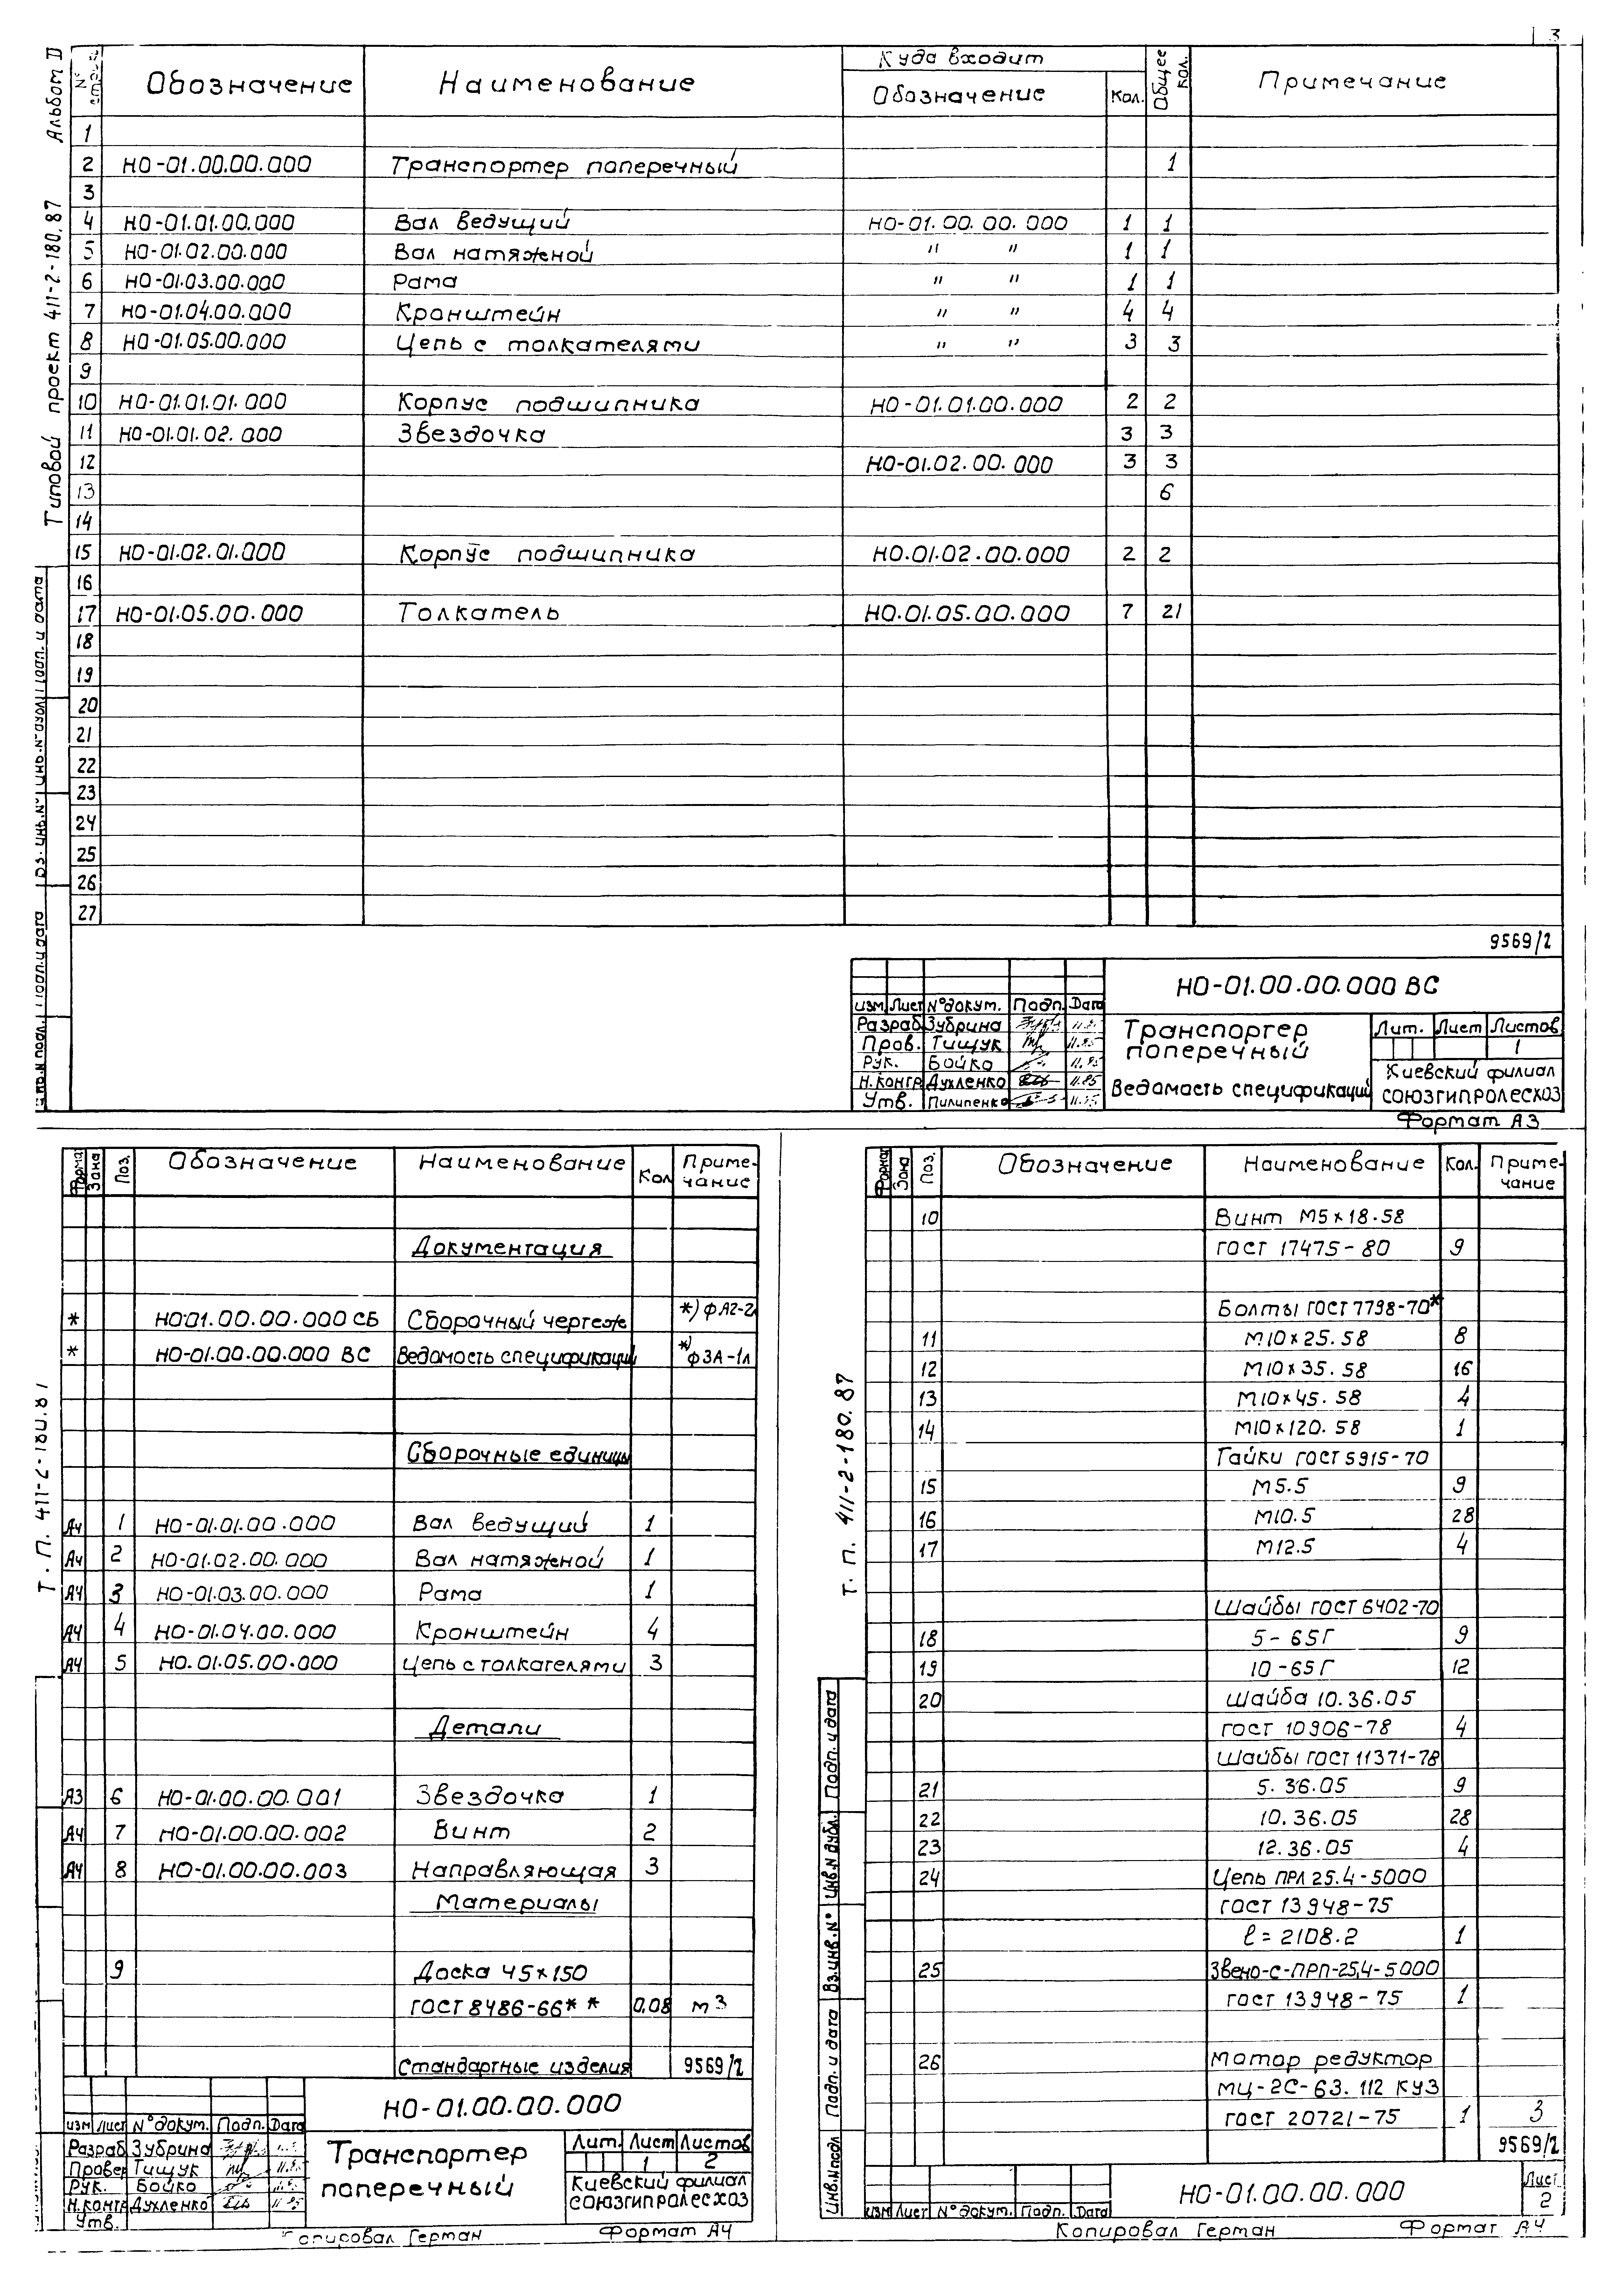 3
Типовой проект 411-2-180.87 Альбом II
№ строки Обозначение Наименование Куда входит Общее кол. Примечание
Обозначение Кол.
1
2 НО-01.00.00.000 Транспортер поперечный 1
3
4 НО-01.01.00.000 Вал ведущий НО-01.00.00.000 1 1
5 НО-01.02.00.000 Вал натяжной " " 1 1
6 НО-01.03.00.000 Рама " " 1 1
7 НО-01.04.00.000 Кронштейн " " 4 4
8 НО-01.05.00.000 Цепь с толкателями " " 3 3
9
10 НО-01.01.01.000 Корпус подшипника НО-01.01.00.000 2 2
11 НО-01.01.02.000 Звездочка 3 3
12 НО-01.02.00.000 3 3
13 6
14
15 НО-01.02.01.000 Корпус подшипника НО.01.02.00.000 2 2
16
17 НО-01.05.00.000 Толкатель НО.01.05.00.000 7 21
18
19
20
21
22
23
24
25
26
27
9569/2
НО-01.00.00.000 ВС
Изм. Лист №докум. Подп. Дата
Разраб Зубрина
Пров. Тищук 11.85
Рук. Бойко 11.85
Н.контр Духленко 11.85
Утв. Пилипенко
Транспортер
поперечный
Ведомость спецификаций
Лит. Лист Листов
1
Киевский филиал
СОЮЗГИПРОЛЕСХОЗ
Формат А3
Т. П. 411-2-180.87
Формат Зона Поз. Обозначение Наименование Кол Приме-
чание
Документация
* НО-01.00.00.000 СБ Сборочный чертеж *) фА2-2л
* НО-01.00.00.000 ВС Ведомость спецификации *) ф3А-1л
Сборочные единицы
А4 1 НО-01.01.00.000 Вал ведущий 1
А4 2 НО-01.02.00.000 Вал натяжной 1
А4 3 НО-01.03.00.000 Рама 1
А4 4 НО-01.04.00.000 Кронштейн 4
А4 5 НО.01.05.00.000 Цепь с толкателями 3
Детали
А3 6 НО-01.00.00.001 Звездочка 1
А4 7 НО-01.00.00.002 Винт 2
А4 8 НО-01.00.00.003 Направляющая 3
Материалы
9 Доска 45×150
ГОСТ 8486-66** 0,08 м3
Стандартные изделия 9569/2
НО-01.00.00.000
Изм Лист №докум. Подп. Дата
Разраб Зубрина
Провер Тищук
Рук. Бойко
Н.контр Духленко
Утв.
Транспортер
поперечный
Лит. Лист Листов
1 2
Киевский филиал
СОЮЗГИПРОЛЕСХОЗ
Копировал Герман Формат А4
Т. П. 411-2-180.87
Формат Зона Поз. Обозначение Наименование Кол. Приме-
чание
10 Винт М5×18.58
ГОСТ 17475-80 9
Болты ГОСТ 7798-70*
11 М10×25.58 8
12 М10×35.58 16
13 М10×45.58 4
14 М10×120.58 1
Гайки ГОСТ 5915-70
15 М5.5 9
16 М10.5 28
17 М12.5 4
Шайбы ГОСТ 6402-70
18 5-65Г 9
19 10-65Г 12
20 Шайба 10.36.05
ГОСТ 10906-78 4
Шайбы ГОСТ 11371-78
21 5.36.05 9
22 10.36.05 28
23 12.36.05 4
24 Цепь ПРЛ 25.4-5000
ГОСТ 13948-75
ℓ=2108.2 1
25 Звено-С-ПРП-25,4-5000
ГОСТ 13948-75 1
26 Мотор редуктор
МЦ-2С-63.112 КУЗ
ГОСТ 20721-75 1 3
9569/2
Инв.№подл Подп. и дата Вз.инв.№ Инв.№дубл. Подп. и дата
Изм Лист №докум. Подп. Дата
НО-01.00.00.000
Лист
2
Копировал Герман Формат А4